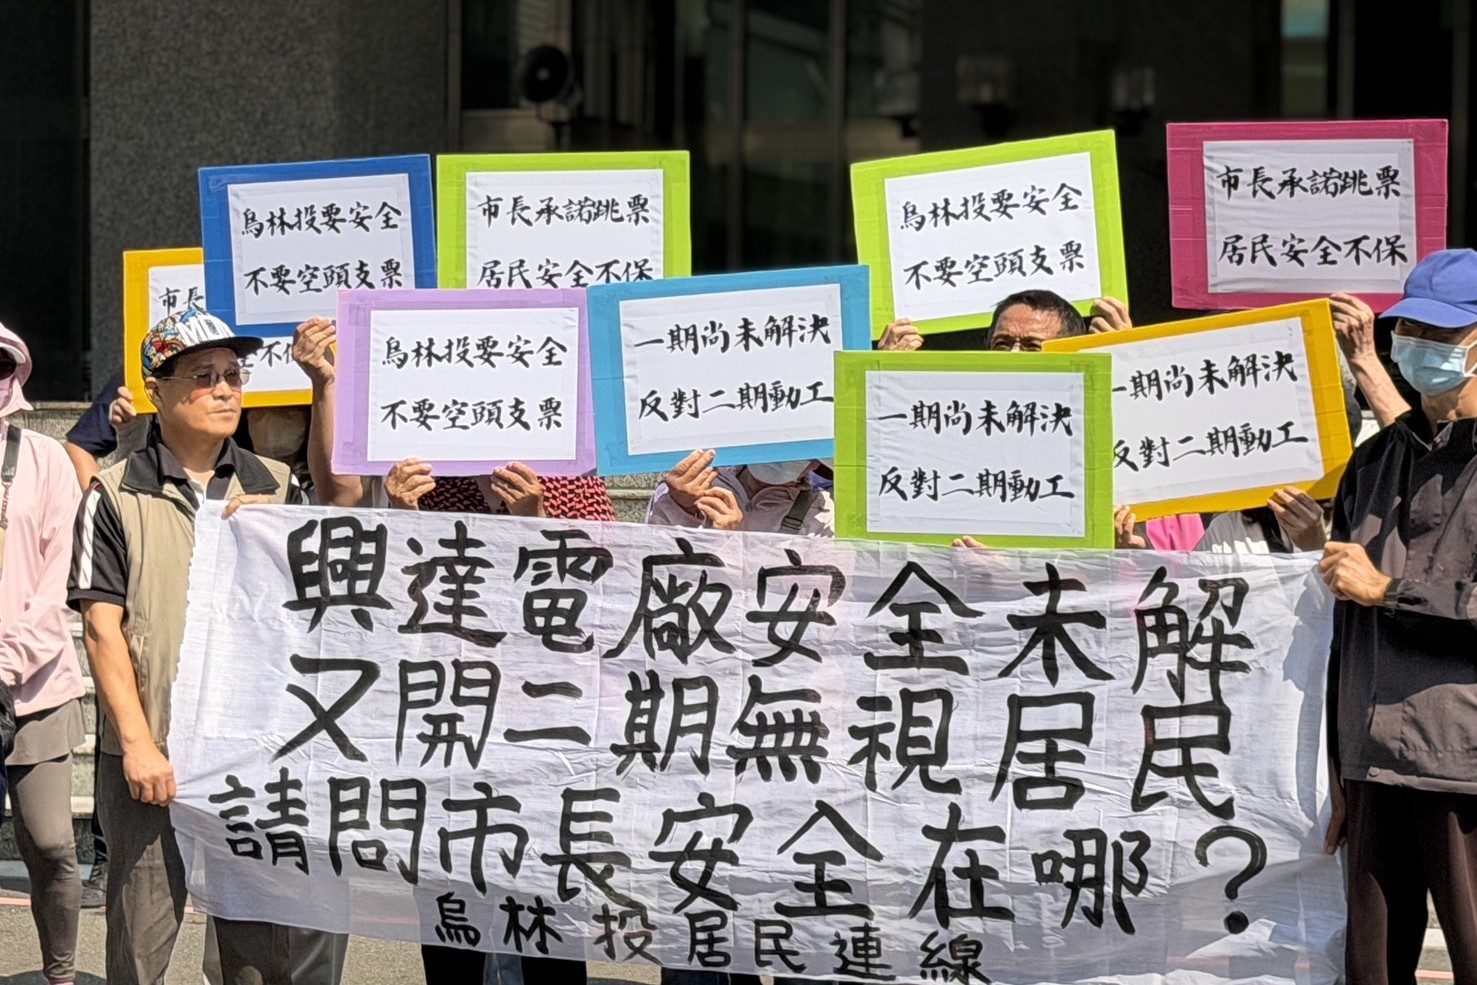 烏林投要安全
不要空頭支票
市長承諾跳票
居民安全不保
烏林投要安全
不要空頭支票
市長承諾跳票
居民安全不保
市長
不保
烏林投要安全
不要空頭支票
一期尚未解決
反對二期動工
一期尚未解決
反對二期動工
一期尚未解決
反對二期動工
興達電廠安全未解
又開二期無視居民
請問市長安全在哪?
烏林投居民連線